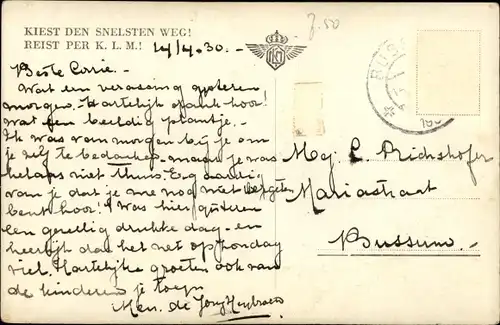 KIEST DEN SNELSTEN WEG!
REIST PER K. L. M.!
14/4.30. -
3.50
Beste Corrie. -
Wat een verassing gisteren
morgen. Hartelijk dank hoor!
wat een beeldig plantje. -
Ik was vanmorgen bij je om
je zelf te bedanken - maar je was
helaas niet thuis. Erg aardig
van je dat je me nog niet vergeten
bent hoor! 't Was hier gisteren
een gezellig drukke dag - en
heerlijk dat het net op Zondag
viel. Hartelijke groeten ook van
de kinderen je toegen.
Mev. de Jong
Mej. C. Richshofer
Mariastraat
Bussum. -